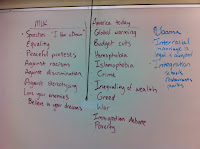 MLK
Speeches "I have a dream"
Equality
Peaceful protests
Against racism
Against discrimination
Against stereotyping
Love your enemies
Believe in your dreams
America today
Global warming
Budget cuts
Homophobia
Islamophobia
Crime
Inequality of wealth
Greed
War
Immigration debate
Poverty
Obama
Interracial
marriage is
legal & accepted
Integration
schools